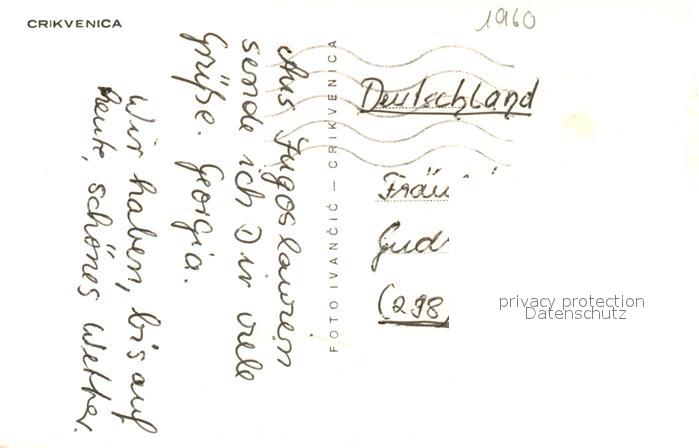 CRIKVENICA
1960
Aus Jugoslawien
sende ich Dir viele
Grüße. Georgia.
Wir haben, bis auf
heute, schönes Wetter.
FOTO IVANČIĆ — CRIKVENICA
Deutschland
(298
privacy protection
Datenschutz